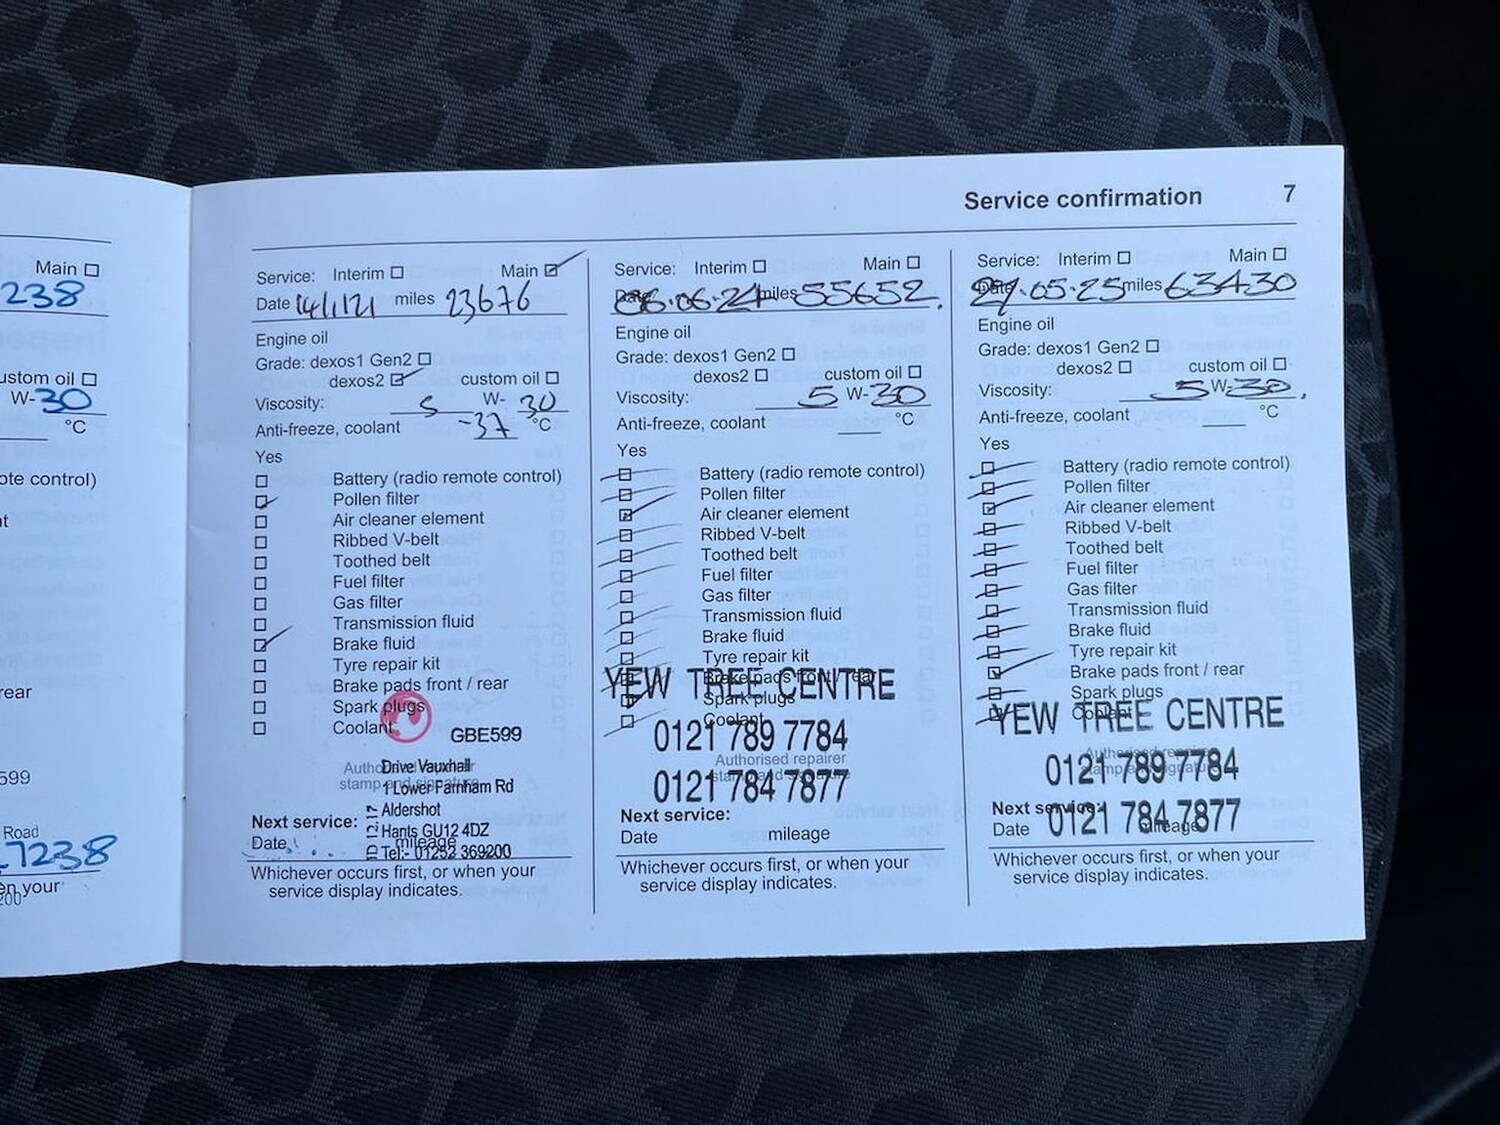 Service confirmation 7
Main
238
ustom oil
W-30
°C
ote control)
t
rear
599
Road
7238
en your
Service: Interim Main
Date 14/1/21 miles 23676
Engine oil
Grade: dexos1 Gen2
dexos2 custom oil
Viscosity: 5 W- 30
Anti-freeze, coolant -37 °C
Yes
Battery (radio remote control)
Pollen filter
Air cleaner element
Ribbed V-belt
Toothed belt
Fuel filter
Gas filter
Transmission fluid
Brake fluid
Tyre repair kit
Brake pads front / rear
Spark plugs
Coolant
GBE599
Drive Vauxhall
1 Lower Farnham Rd
Aldershot
Hants GU12 4DZ
Tel:- 01252 369200
Next service:
Date mileage
Whichever occurs first, or when your
service display indicates.
Service: Interim Main
Date 06.06.24 miles 55652
Engine oil
Grade: dexos1 Gen2
dexos2 custom oil
Viscosity: 5 W-30
Anti-freeze, coolant °C
Yes
Battery (radio remote control)
Pollen filter
Air cleaner element
Ribbed V-belt
Toothed belt
Fuel filter
Gas filter
Transmission fluid
Brake fluid
Tyre repair kit
Brake pads front / rear
YEW TREE CENTRE
Spark plugs
Coolant
0121 789 7784
Authorised repairer
stamp and signature
0121 784 7877
Next service:
Date mileage
Whichever occurs first, or when your
service display indicates.
Service: Interim Main
Date 05.25 miles 63430
Engine oil
Grade: dexos1 Gen2
dexos2 custom oil
Viscosity: 5 W-30
Anti-freeze, coolant °C
Yes
Battery (radio remote control)
Pollen filter
Air cleaner element
Ribbed V-belt
Toothed belt
Fuel filter
Gas filter
Transmission fluid
Brake fluid
Tyre repair kit
Brake pads front / rear
Spark plugs
Coolant
YEW TREE CENTRE
Authorised repairer
stamp and signature
0121 789 7784
Next service:
0121 784 7877
Date mileage
Whichever occurs first, or when your
service display indicates.